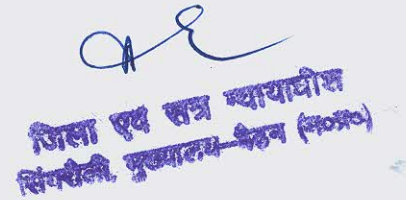 जिला एवं सत्र न्यायाधीश
सिंगरौली, मुख्यालय-बैढ़न (म०प्र०)